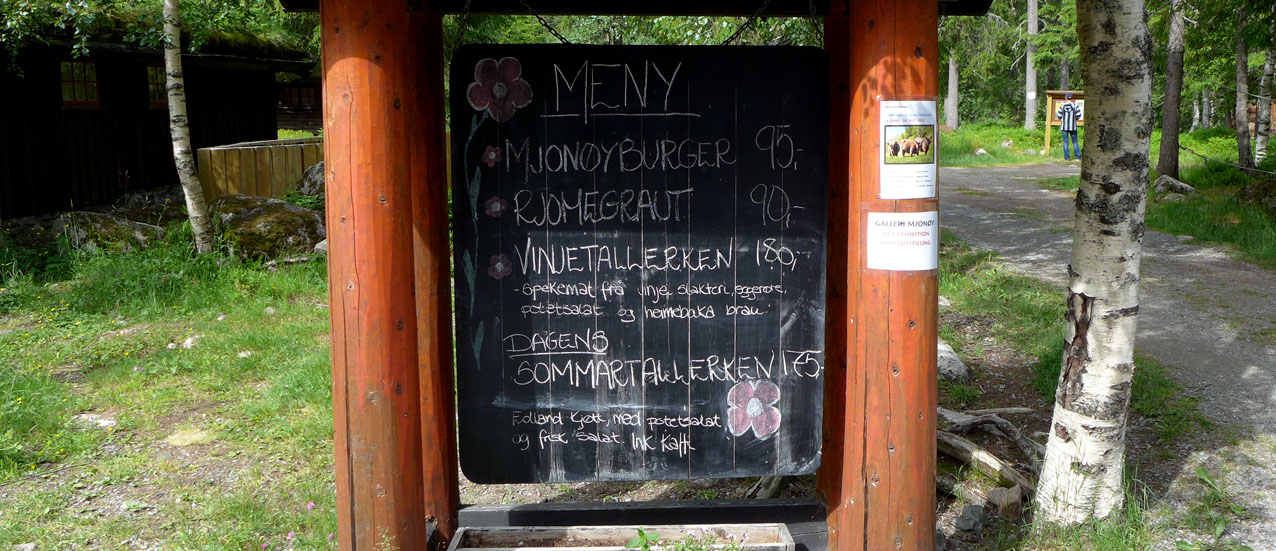 MENY
MJONØYBURGER 95,-
RJOMEGRAUT 90,-
VINJETALLERKEN 180,-
- Spekemat frå vinje slakteri, eggerøre,
potetsalat og heimebaka brau.
DAGENS
SOMMARTALLERKEN 175,-
kjøtt, med potetsalat
og frisk salat. INK Kaffi
GALLERI MJONØY